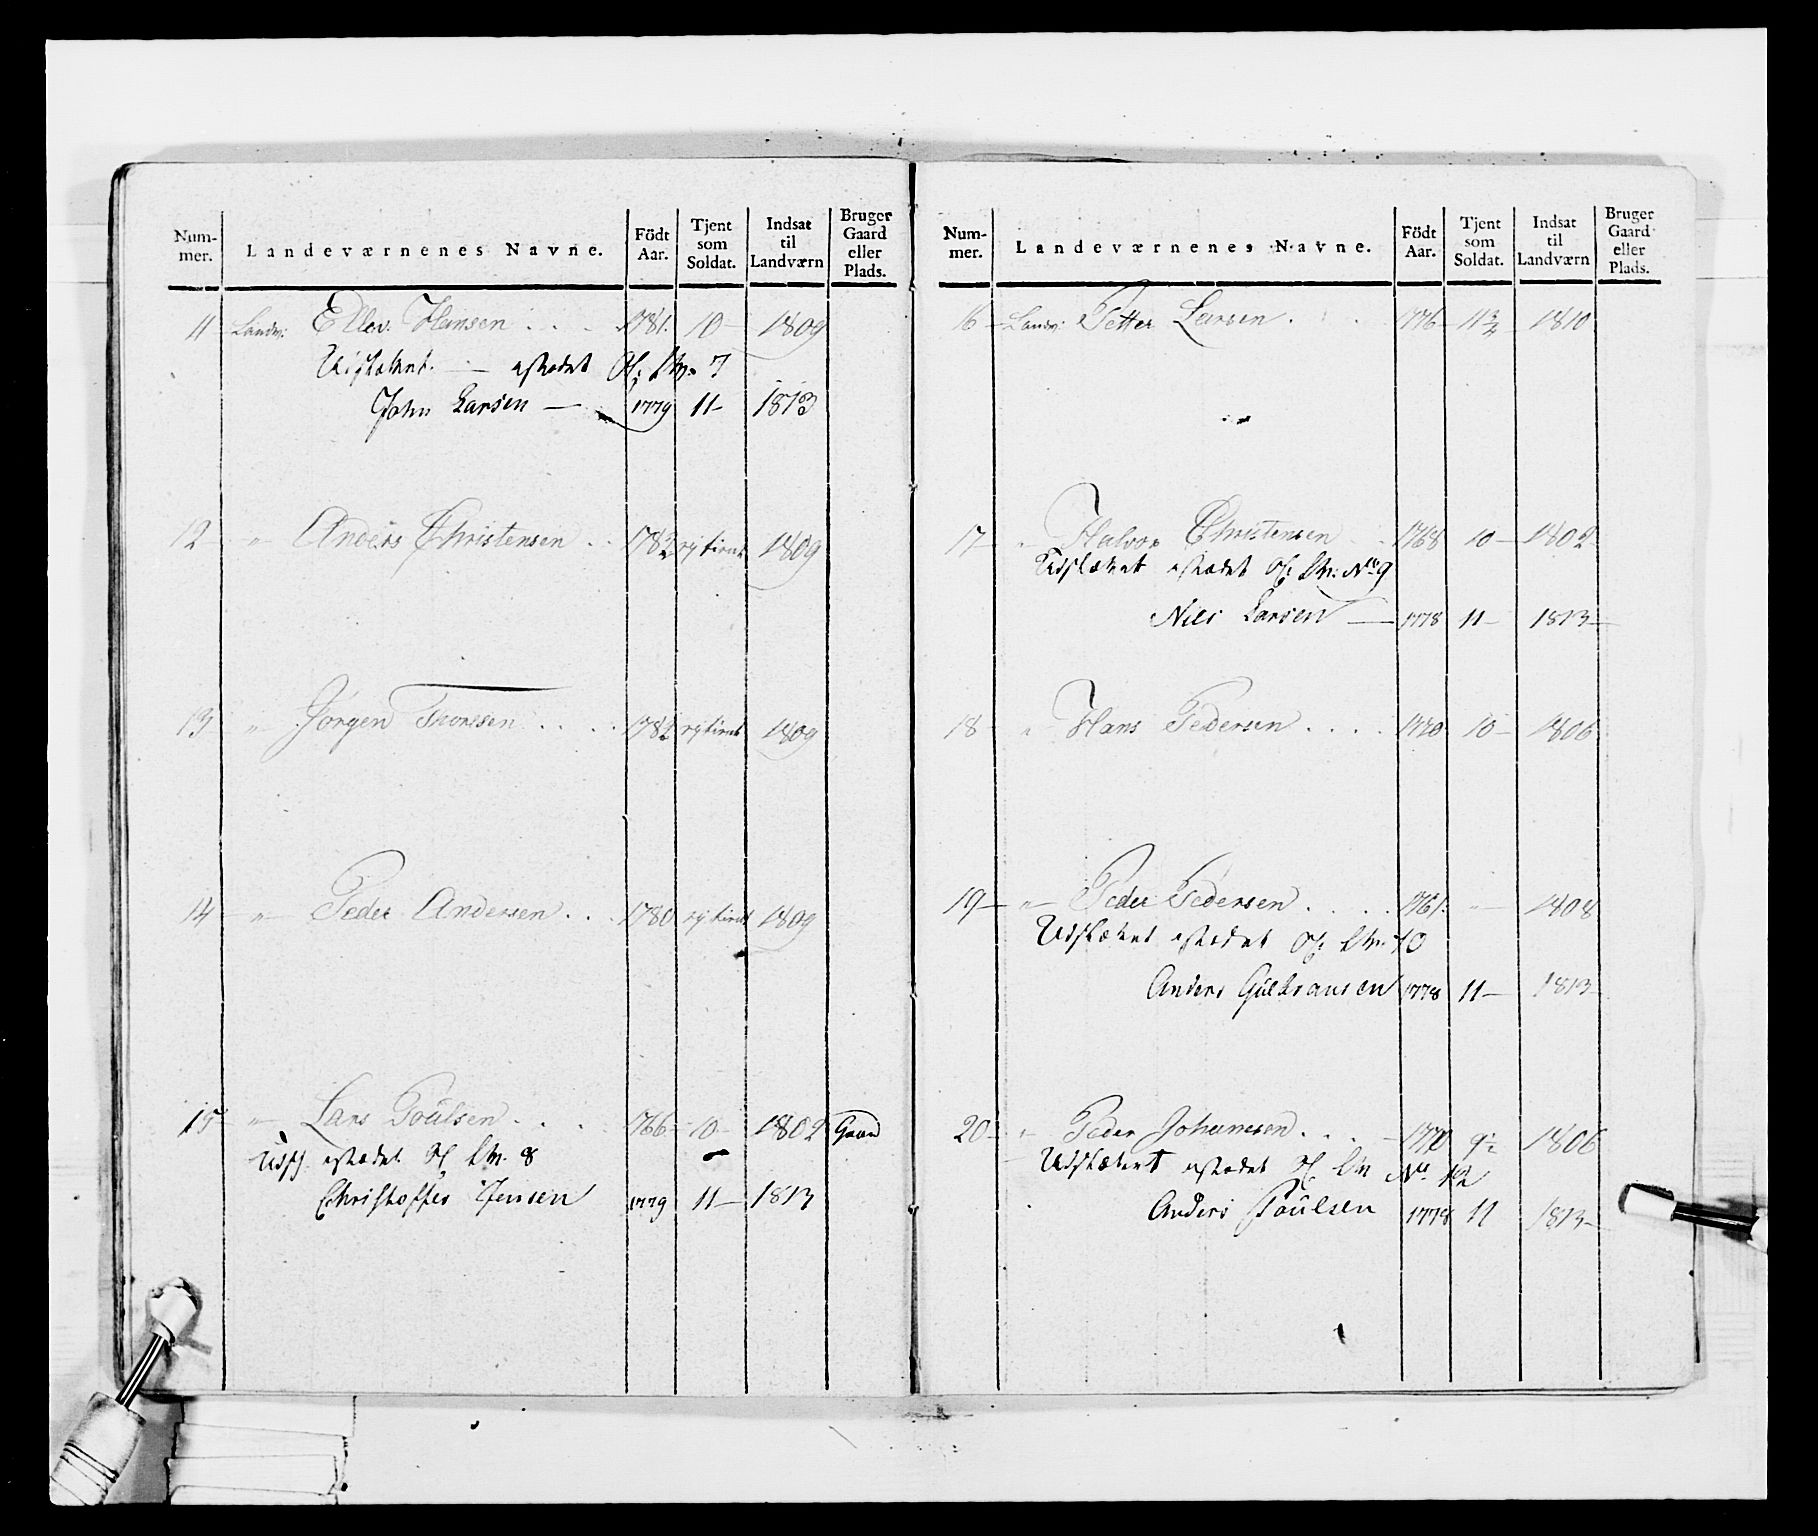 Num-mer. Landeværnenes Navne. Födt Aar. Tjent som Soldat. Indsat til Landværn Bruger Gaard eller Plads.
11 Landv: Ellev Hansen . . . 1781. 10 1809
Udslættet. — afstedet Lw. 7
John Larsen — 1779 11 — 1813
12 — " — Anders Christensen . . 1809
13 " Jörgen Thoresen . . . . 1809
14 — " — Peder Andersen . . . 1780 1809
15 — " — Lars Poülsen . . . . 1766 — 10 — 1802 Gaard
Lw. 8
Christoffer Jensen 1779 11 — 1813
Num-mer. Landeværnenes Navne. Födt Aar. Tjent som Soldat. Indsat til Landværn Bruger Gaard eller Plads.
16 — Landv: Petter Larsen . . . 1776 11 3/4 1810
17 — " Halvor Christensen . . 1768 10 — 1802
Udslættet Lw: No 9
Niels Larsen — 1778 11 — 1813 —
18 — " Hans Pedersen . . . . 1770 10 — 1806
19 — " — Peder Pedersen . . . . . 1761. — " — 1808
Udslættet Lw. 10
Anders Gülbransen 1778 11 — 1813 —
20 — " Peder Johannesen . . . — 1770 9 1/2 1806
Udslættet Lw No. 12
Anders Poülsen 1778 11 1813 —